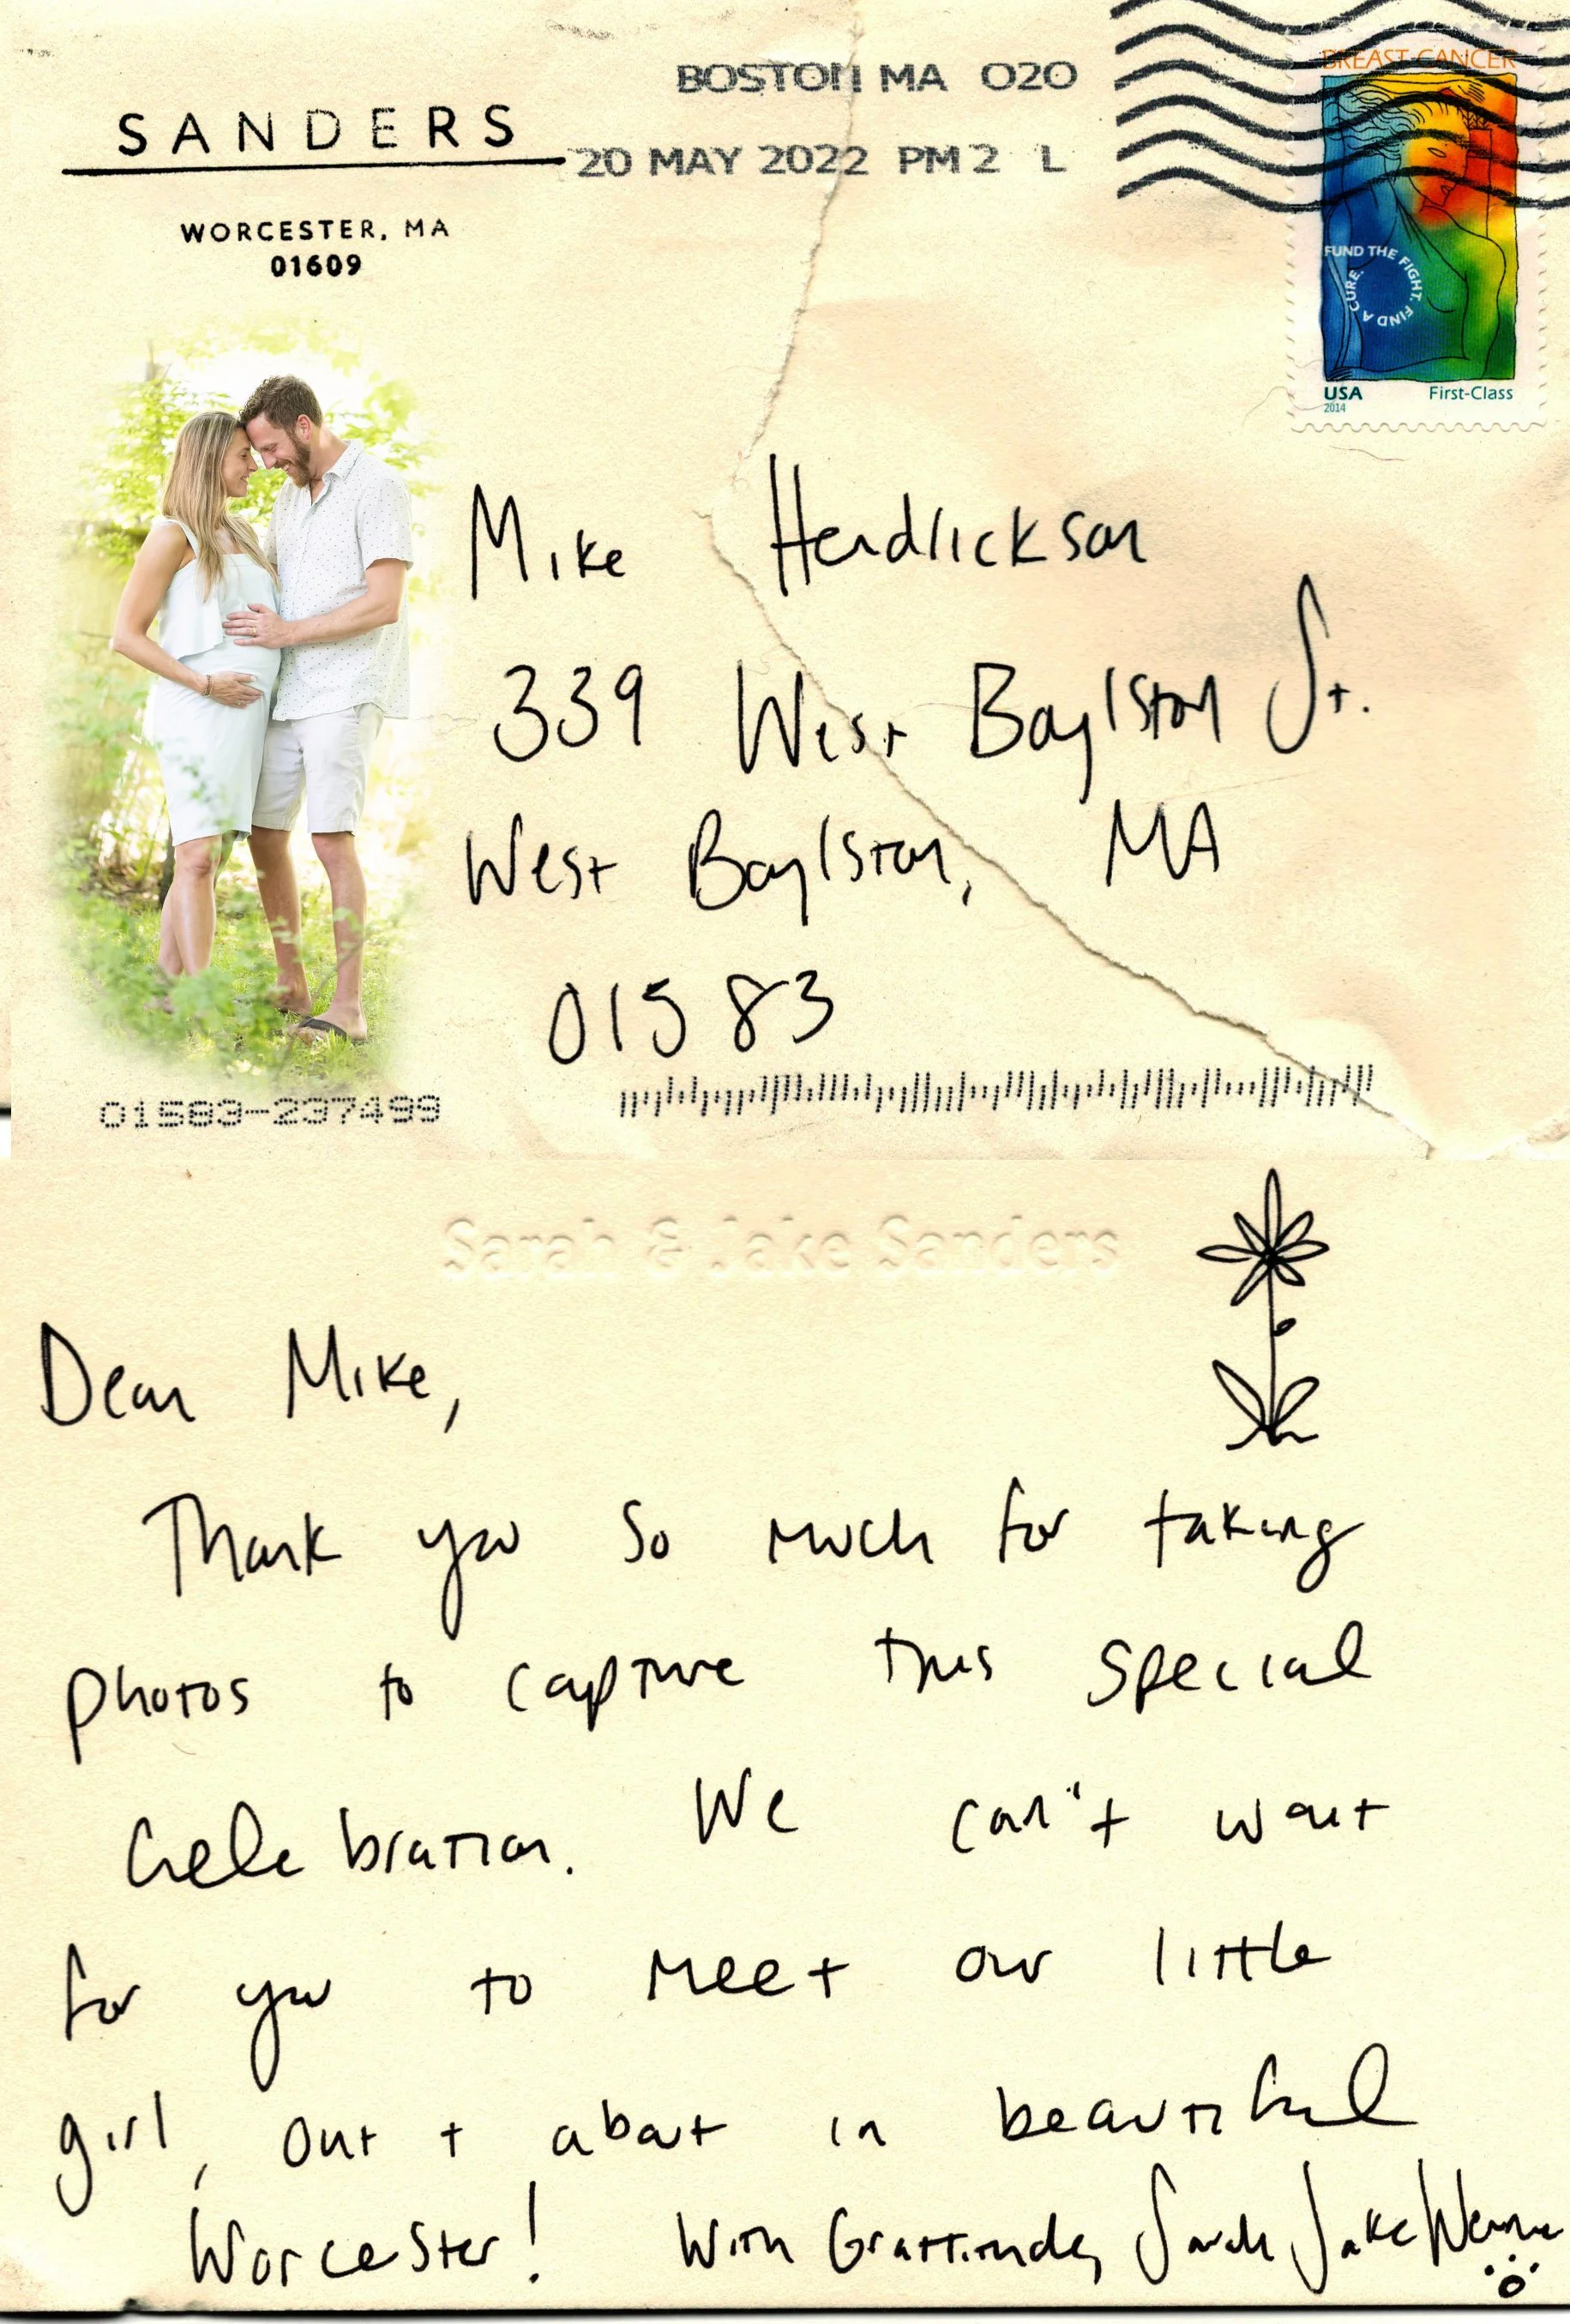 BOSTON MA 020
20 MAY 2022 PM 2 L
SANDERS
WORCESTER, MA
01609
BREAST CANCER
FUND THE FIGHT. FIND A CURE.
USA First-Class
2014
Mike Hendrickson
339 West Boylston St.
West Boylston, MA
01583
01583-237499
Sarah & Jake Sanders
Dear Mike,
Thank you so much for taking
photos to capture this special
celebration. We can't wait
for you to meet our little
girl, out + about in beautiful
Worcester! With Gratitude, Sarah Jake